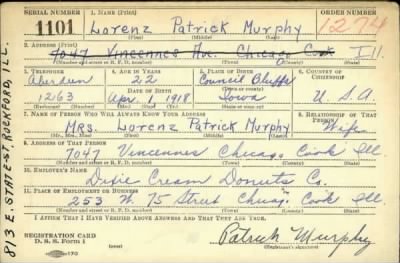 SERIAL NUMBER 1. NAME (Print) ORDER NUMBER
1101 Lorenz Patrick Murphy 1274
(First) (Middle) (Last)
2. ADDRESS (Print)
7047 Vincennes Ave. Chicago Cook Ill.
(Number and street or R. F. D. number) (Town) (County) (State)
3. TELEPHONE 4. AGE IN YEARS 5. PLACE OF BIRTH 6. COUNTRY OF CITIZENSHIP
Aberdeen 22 Council Bluffs
DATE OF BIRTH (Town or county)
1263 Apr. 1918 Iowa U.S.A.
(Exchange) (Number) (Mo.) (Day) (Yr.) (State or country)
7. NAME OF PERSON WHO WILL ALWAYS KNOW YOUR ADDRESS 8. RELATIONSHIP OF THAT PERSON
Mrs. Lorenz Patrick Murphy Wife
(Mr., Mrs., Miss) (First) (Middle) (Last)
9. ADDRESS OF THAT PERSON
7047 Vincennes Chicago Cook Ill.
(Number and street or R. F. D. number) (Town) (County) (State)
10. EMPLOYER'S NAME
Dixie Cream Donuts Co.
11. PLACE OF EMPLOYMENT OR BUSINESS
253 W. 75 Street Chicago Cook Ill.
(Number and street or R. F. D. number) (Town) (County) (State)
I AFFIRM THAT I HAVE VERIFIED ABOVE ANSWERS AND THAT THEY ARE TRUE.
REGISTRATION CARD
D. S. S. Form 1 Patrick Murphy
(Registrant's signature)
813 E. STATE-ST, ROCKFORD, ILL.